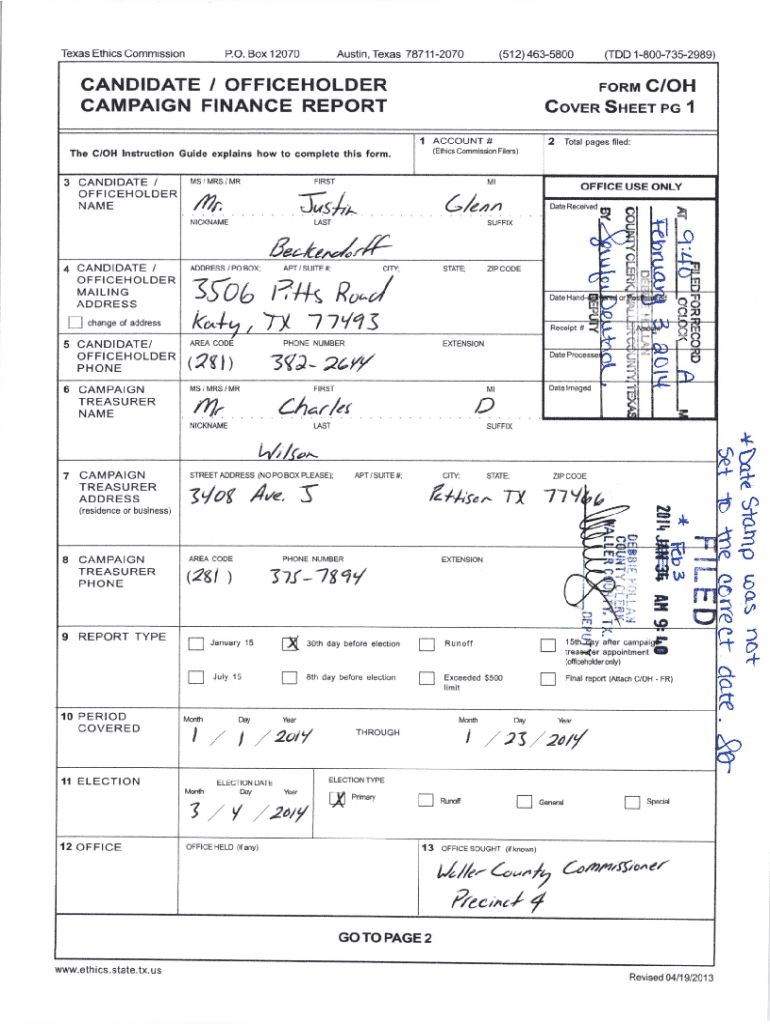 Texas Ethics Commission P.O. Box 12070 Austin, Texas 78711-2070 (512) 463-5800 (TDD 1-800-735-2989)
CANDIDATE / OFFICEHOLDER
CAMPAIGN FINANCE REPORT
FORM C/OH
COVER SHEET PG 1
The C/OH Instruction Guide explains how to complete this form.
1 ACCOUNT #
(Ethics Commission Filers)
2 Total pages filed:
3 CANDIDATE /
OFFICEHOLDER
NAME
MS / MRS / MR FIRST MI
Mr. Justin Glenn
NICKNAME LAST SUFFIX
Beckendorff
OFFICE USE ONLY
Date Received
FILED FOR RECORD
AT 9:40 O'CLOCK A M
February 3, 2014
DEBBIE HOLLAN
COUNTY CLERK, WALLER COUNTY, TEXAS
BY DEPUTY
Receipt # Amount
Date Processed
Date Imaged
4 CANDIDATE /
OFFICEHOLDER
MAILING
ADDRESS
change of address
ADDRESS / PO BOX; APT / SUITE #; CITY; STATE; ZIP CODE
3506 Pitts Road
Katy, TX 77493
5 CANDIDATE/
OFFICEHOLDER
PHONE
AREA CODE PHONE NUMBER EXTENSION
(281) 382-2644
6 CAMPAIGN
TREASURER
NAME
MS / MRS / MR FIRST MI
Mr Charles D
NICKNAME LAST SUFFIX
Wilson
7 CAMPAIGN
TREASURER
ADDRESS
(residence or business)
STREET ADDRESS (NO PO BOX PLEASE); APT / SUITE #; CITY; STATE; ZIP CODE
3408 Ave. J Pattison TX 77466
8 CAMPAIGN
TREASURER
PHONE
AREA CODE PHONE NUMBER EXTENSION
(281) 375-7894
FILED
* Feb 3
2014 JAN 34 AM 9:40
DEBBIE HOLLAN
COUNTY CLERK
WALLER COUNTY, TX.
DEPUTY
* Date Stamp was not
set to the correct date.
9 REPORT TYPE
January 15
X 30th day before election
Runoff
15th day after campaign
treasurer appointment
(officeholder only)
July 15
8th day before election
Exceeded $500
limit
Final report (Attach C/OH - FR)
10 PERIOD
COVERED
Month Day Year
1 / 1 / 2014
THROUGH
Month Day Year
1 / 23 / 2014
11 ELECTION
ELECTION DATE
Month Day Year
3 / 4 / 2014
ELECTION TYPE
X Primary
Runoff
General
Special
12 OFFICE
OFFICE HELD (if any)
13 OFFICE SOUGHT (if known)
Waller County Commissioner
Precinct 4
GO TO PAGE 2
www.ethics.state.tx.us
Revised 04/19/2013